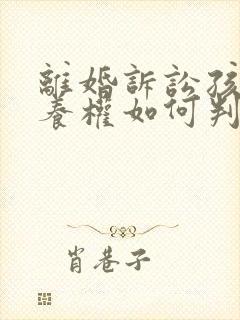 離婚訴訟孩
養權如何判
肖巷子